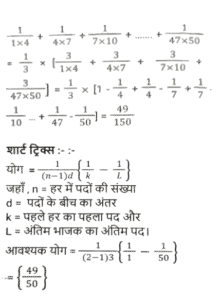 1/1×4 + 1/4×7 + 1/7×10 + ........ + 1/47×50
= 1/3 × [3/1×4 + 3/4×7 + 3/7×10 +
3/47×50] = 1/3 × [1 - 1/4 + 1/4 - 1/7 + 1/7 -
1/10 ... + 1/47 - 1/50] = 49/150
शार्ट ट्रिक्स :- :-
योग = 1/(n−1)d {1/k − 1/L}
जहाँ , n = हर में पदों की संख्या
d = पदों के बीच का अंतर
k = पहले हर का पहला पद और
L = अंतिम भाजक का अंतिम पद।
आवश्यक योग = 1/(2−1)3 {1/1 − 1/50}
= {49/50}